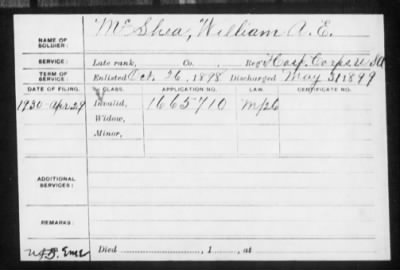 NAME OF SOLDIER: McShea, William A. E.
SERVICE: Late rank, Co. Reg't Hosp. Corps
TERM OF SERVICE: Enlisted Oct. 26, 1898 Discharged May 31 1899
DATE OF FILING. CLASS. APPLICATION NO. LAW. CERTIFICATE NO.
1930-Apr 29 Invalid, 1665710
Widow,
Minor,
ADDITIONAL SERVICES:
REMARKS:
Died , 1 , at